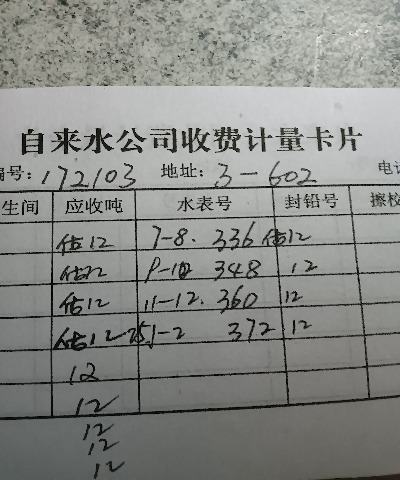 自来水公司收费计量卡片
编号: 172103 地址: 3-602 电话
生间 应收吨 水表号 封铅号 擦校
估12 7-8. 336 估12
估12 9-10 348 12
估12 11-12. 360 12
估12 1-2 372 12
12
12
12
12
12